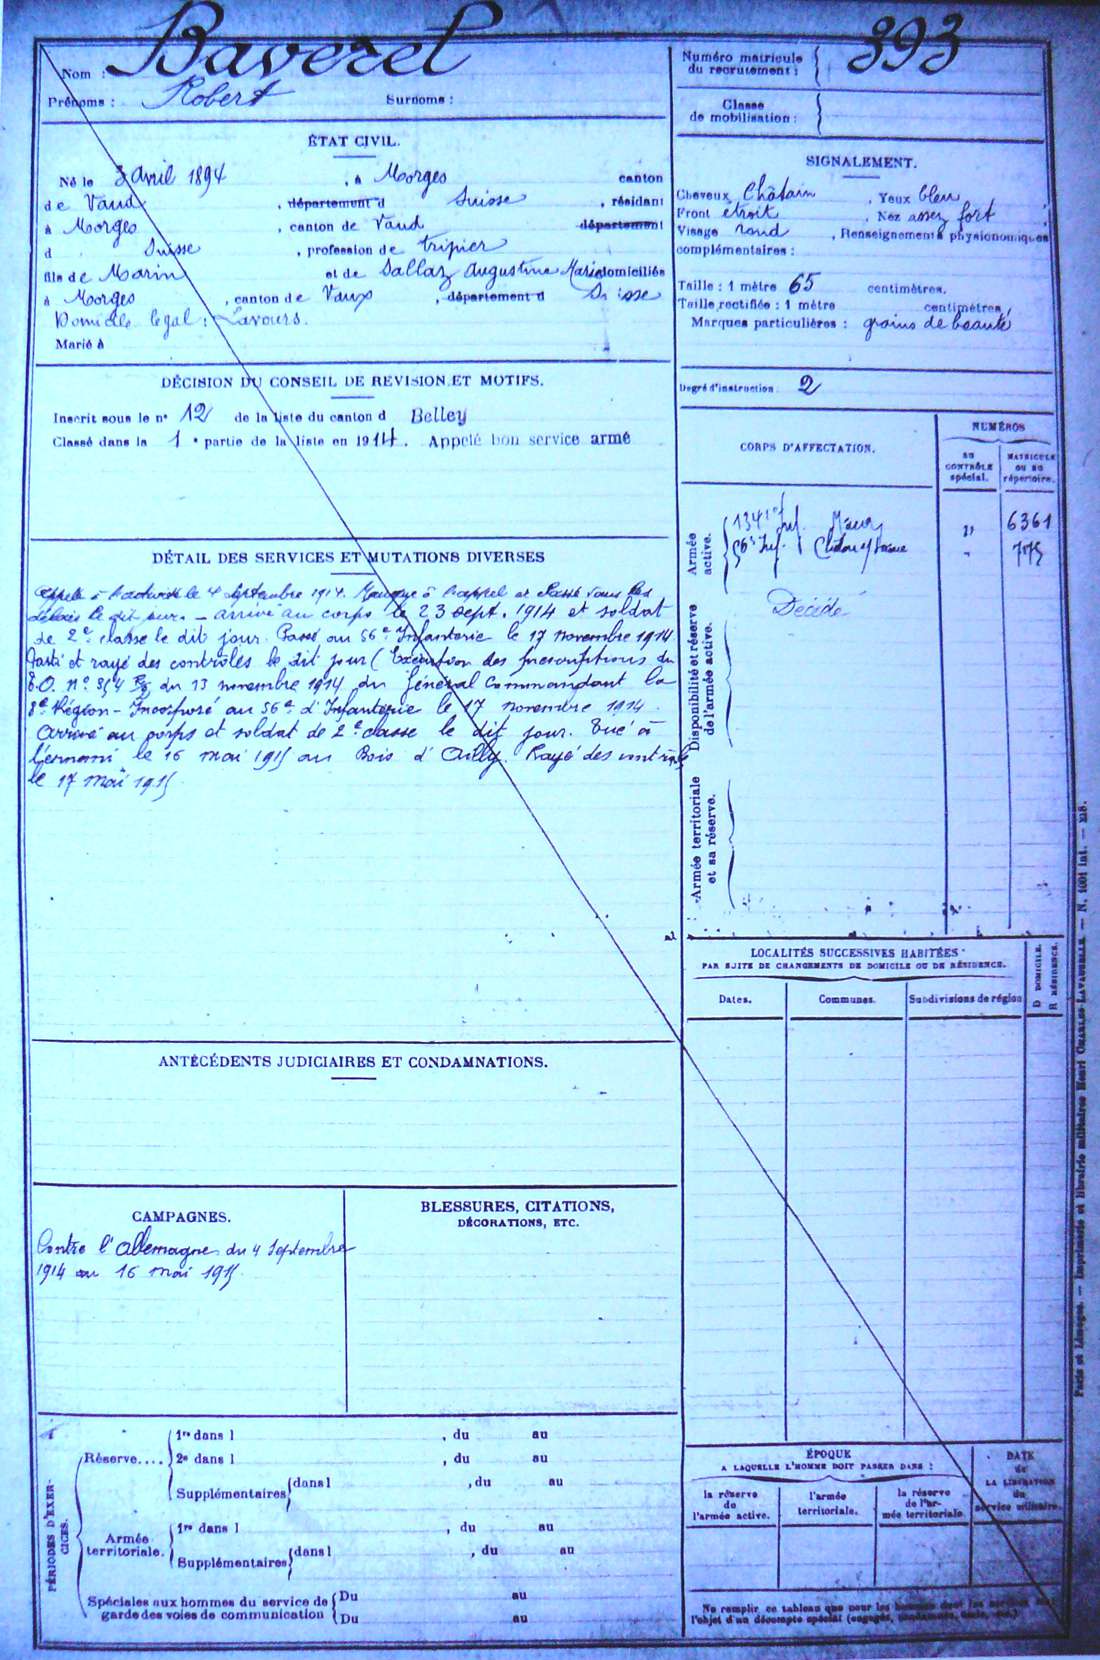 Nom : Baverel
Prénoms : Robert Surnoms :
Numéro matricule du recrutement : 393
Classe de mobilisation :
ÉTAT CIVIL.
Né le 3 avril 1894, à Morges canton
de Vaud, département d Suisse, résidant
à Morges, canton de Vaud département
d Suisse, profession de tripier
fils de Marin et de Sallaz Augustine Marie domiciliés
à Morges, canton de Vaux, département d Suisse
Domicile légal : Lavours.
Marié à
SIGNALEMENT.
Cheveux Châtain, Yeux bleu
Front etroit, Nez assez fort
Visage rond, Renseignements physionomiques
complémentaires :
Taille : 1 mètre 65 centimètres.
Taille rectifiée : 1 mètre centimètres
Marques particulières : grains de beauté
Degré d'instruction 2
DÉCISION DU CONSEIL DE REVISION ET MOTIFS.
Inscrit sous le n° 12 de la liste du canton d Belley
Classé dans la 1e partie de la liste en 1914. Appelé bon service armé
DÉTAIL DES SERVICES ET MUTATIONS DIVERSES
le 4 Septembre 1914. Manque à l'appel et
délais le dit jour. - arrivé au corps le 23 sept. 1914 et soldat
de 2e classe le dit jour. Passé au 56e Infanterie le 17 novembre 1914.
Parti et rayé des contrôles le dit jour (Exécution des prescriptions du
du 13 novembre 1914 du Général Commandant la
8e Région - Incorporé au 56e d'Infanterie le 17 novembre 1914.
Arrivé au corps et soldat de 2e classe le dit jour. Tué à
l'ennemi le 16 mai 1915 au Bois d'Ailly. Rayé des contrôles
le 17 Mai 1915
CORPS D'AFFECTATION.
NUMÉROS
au CONTRÔLE spécial.
MATRICULE ou au répertoire.
Armée active.
134e Inf. 6361
56e Inf. 775
Décédé
Disponibilité et réserve de l'armée active.
Armée territoriale et sa réserve.
LOCALITÉS SUCCESSIVES HABITÉES
PAR SUITE DE CHANGEMENTS DE DOMICILE OU DE RÉSIDENCE.
Dates. Communes. Subdivisions de région
D DOMICILE.
R RÉSIDENCE.
ANTÉCÉDENTS JUDICIAIRES ET CONDAMNATIONS.
CAMPAGNES.
Contre l'Allemagne du 4 Septembre
1914 au 16 mai 1915
BLESSURES, CITATIONS,
DÉCORATIONS, ETC.
PÉRIODES D'EXERCICES.
Réserve....
1re dans l , du au
2e dans l , du au
Supplémentaires dans l , du au
Armée territoriale.
1re dans l , du au
Supplémentaires dans l , du au
Spéciales aux hommes du service de garde des voies de communication
Du au
Du au
ÉPOQUE
A LAQUELLE L'HOMME DOIT PASSER DANS :
la réserve de l'armée active.
l'armée territoriale.
la réserve de l'armée territoriale
DATE de LA LIBÉRATION du service militaire.
Ne remplir ce tableau que pour les hommes dont les services
l'objet d'un décompte spécial
Paris et Limoges. — Imprimerie et librairie militaires Henri CHARLES-LAVAUZELLE. — N. 1001 int. —